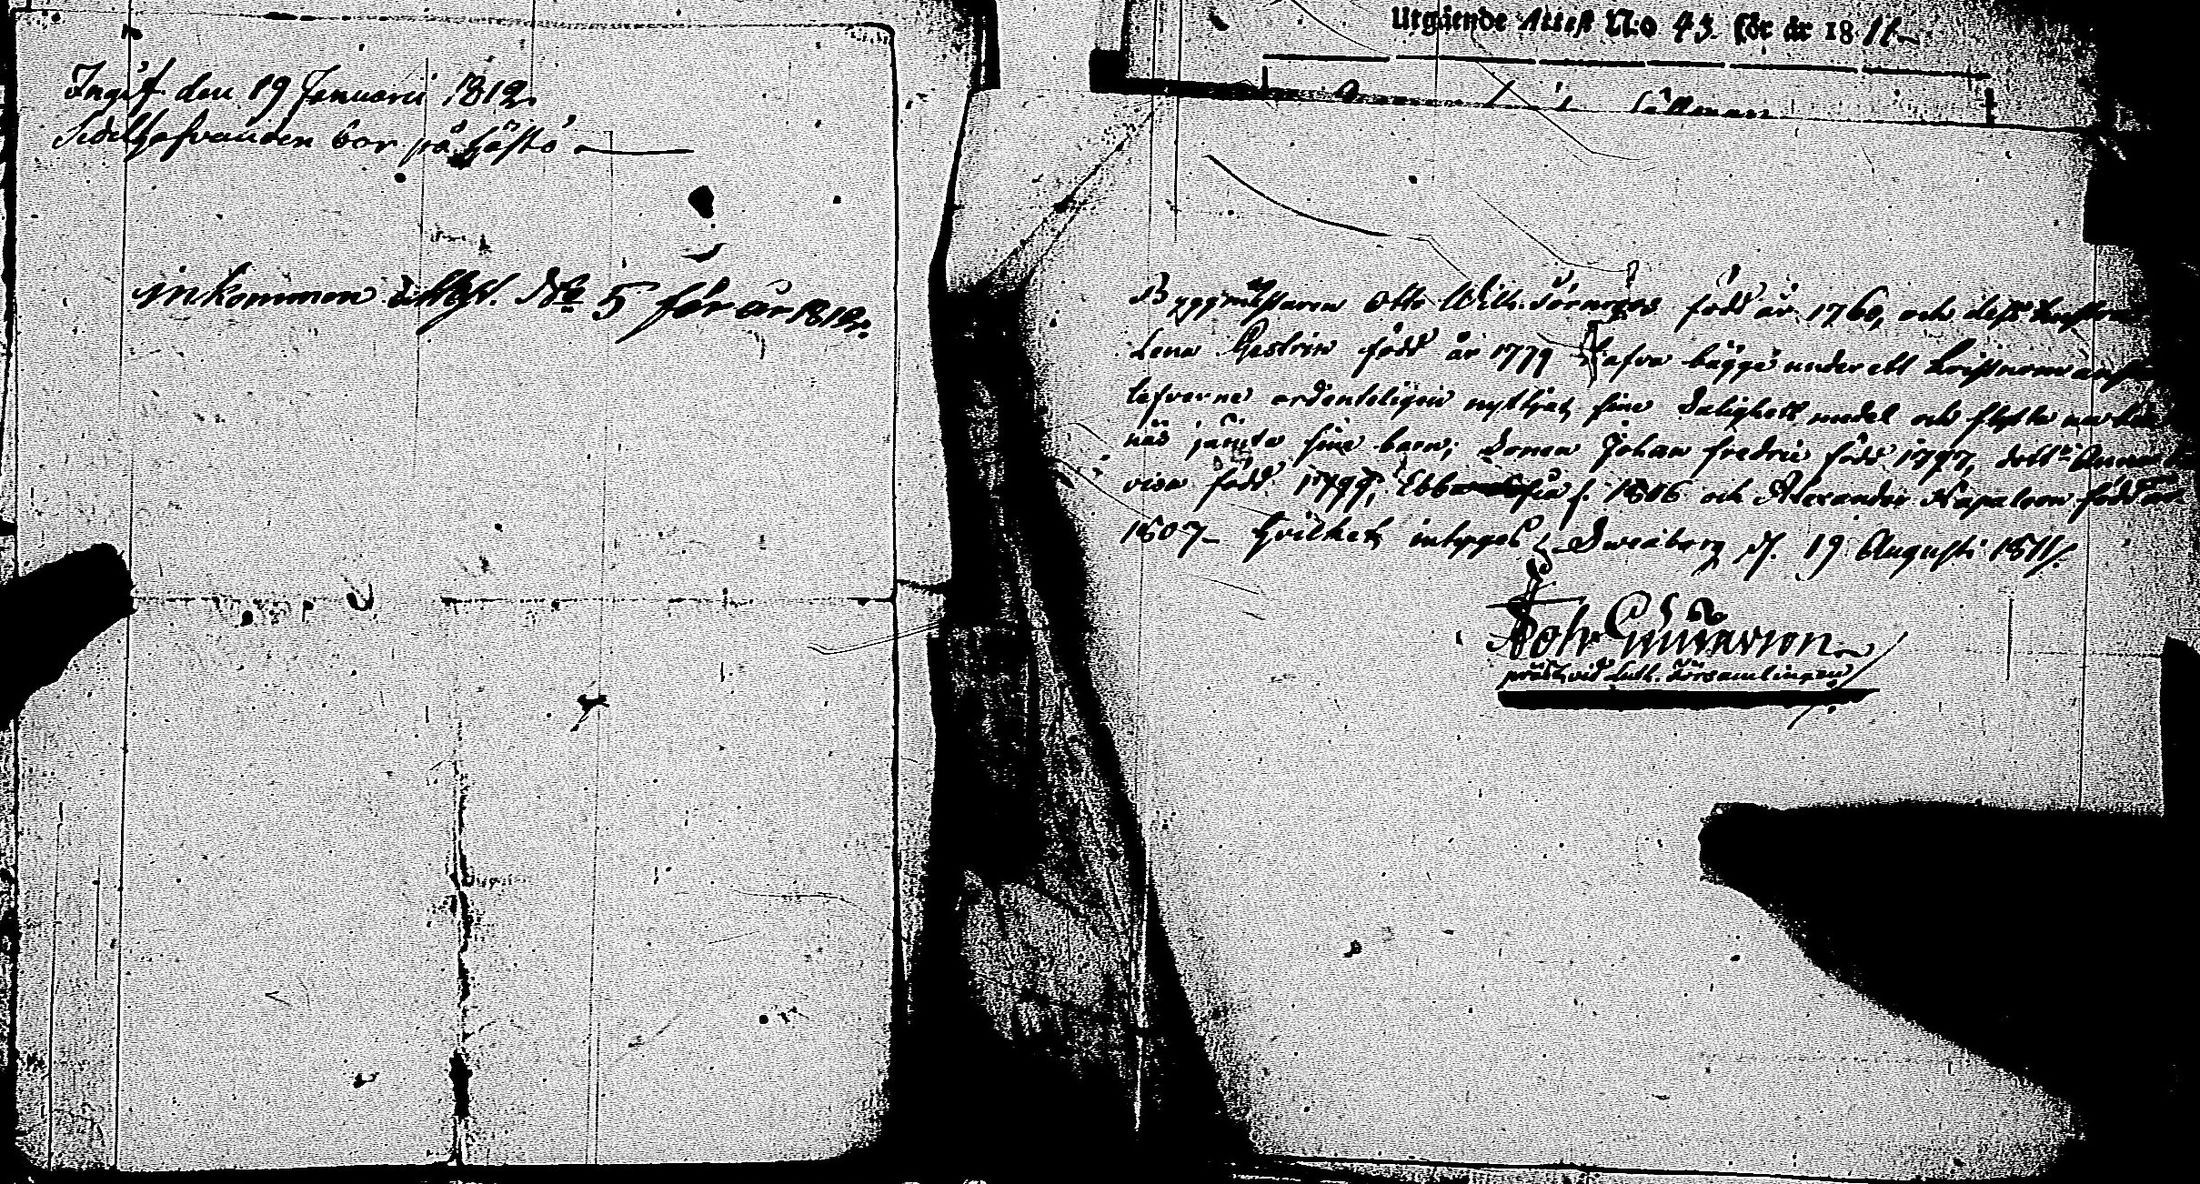 Ingif. den 19 Januarii 1812.
bor på Hästö
inkommen Attest. No 5 för år 1812.
Utgående Attest N:o 43 för år 1811
Byggmästaren Otto Wilh. född år 1760, och dess hustru
Lena Gestrin född år 1779 hafva bägge under ett
ordenteligen nyttjat sine Salighets medel och flytta
jämte sine barn; Sonen Johan Fredric född 1797, dottr Anna
född 1799, Ebba f. 1806 och Alexander Napoleon född år
1807 Hvilket intygas Sweaborg d. 19 Augusti 1811.
präst vid Luth. Församlingen